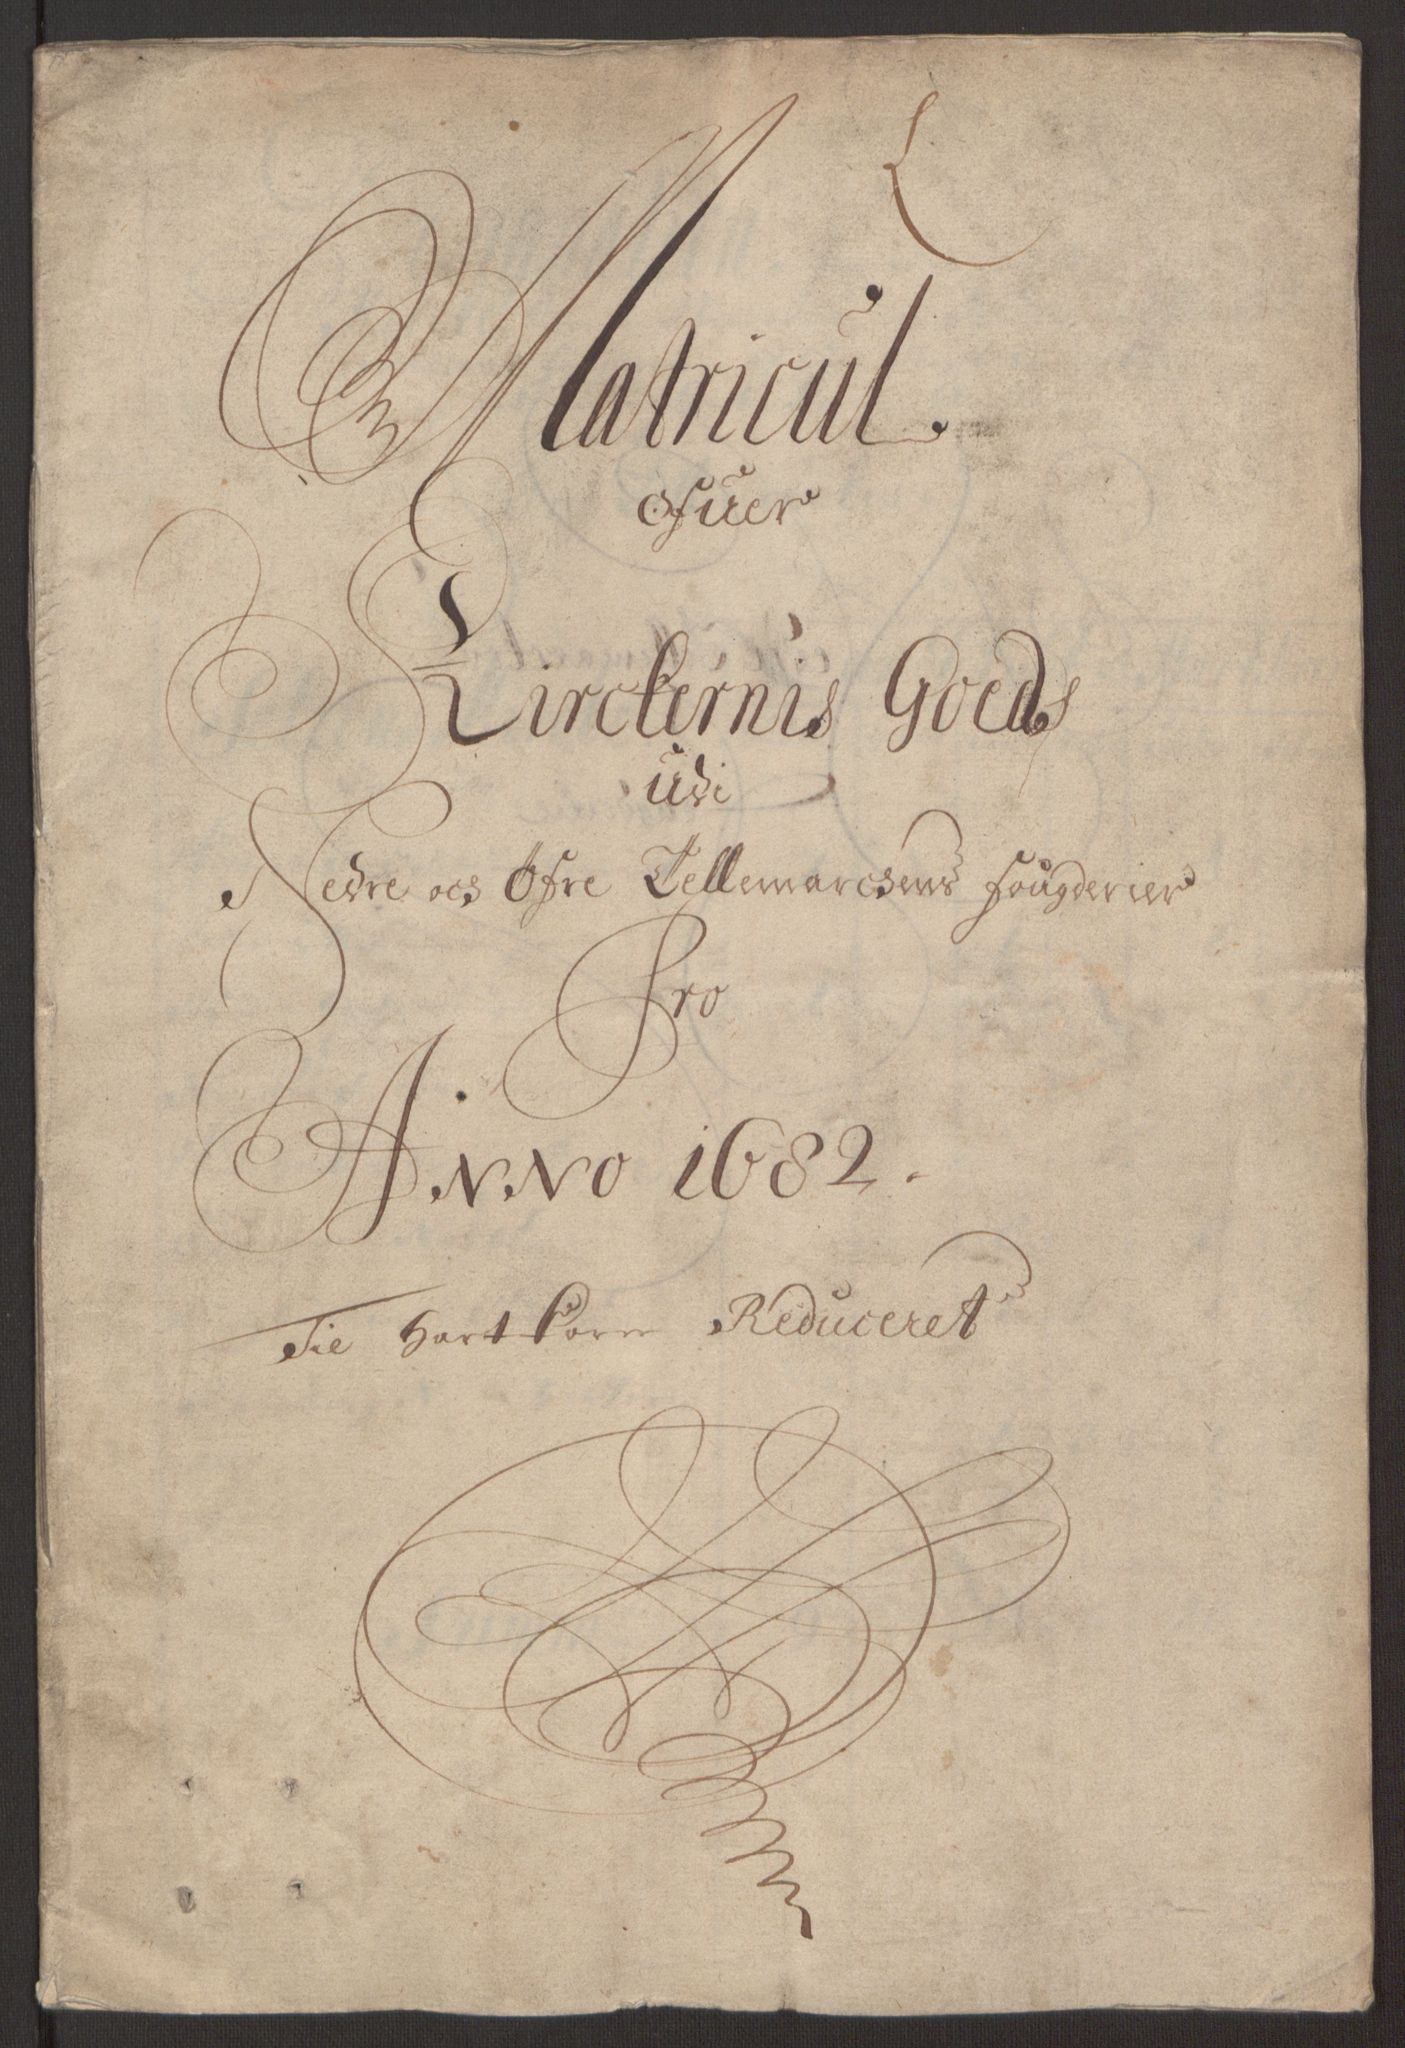 L
Matricul.
Ofuer
Kirckernis Goeds
udi
Nedre och Öfre Tellemarchens fougderier
Pro
Anno 1682.
Til Hart Korn Reduceret